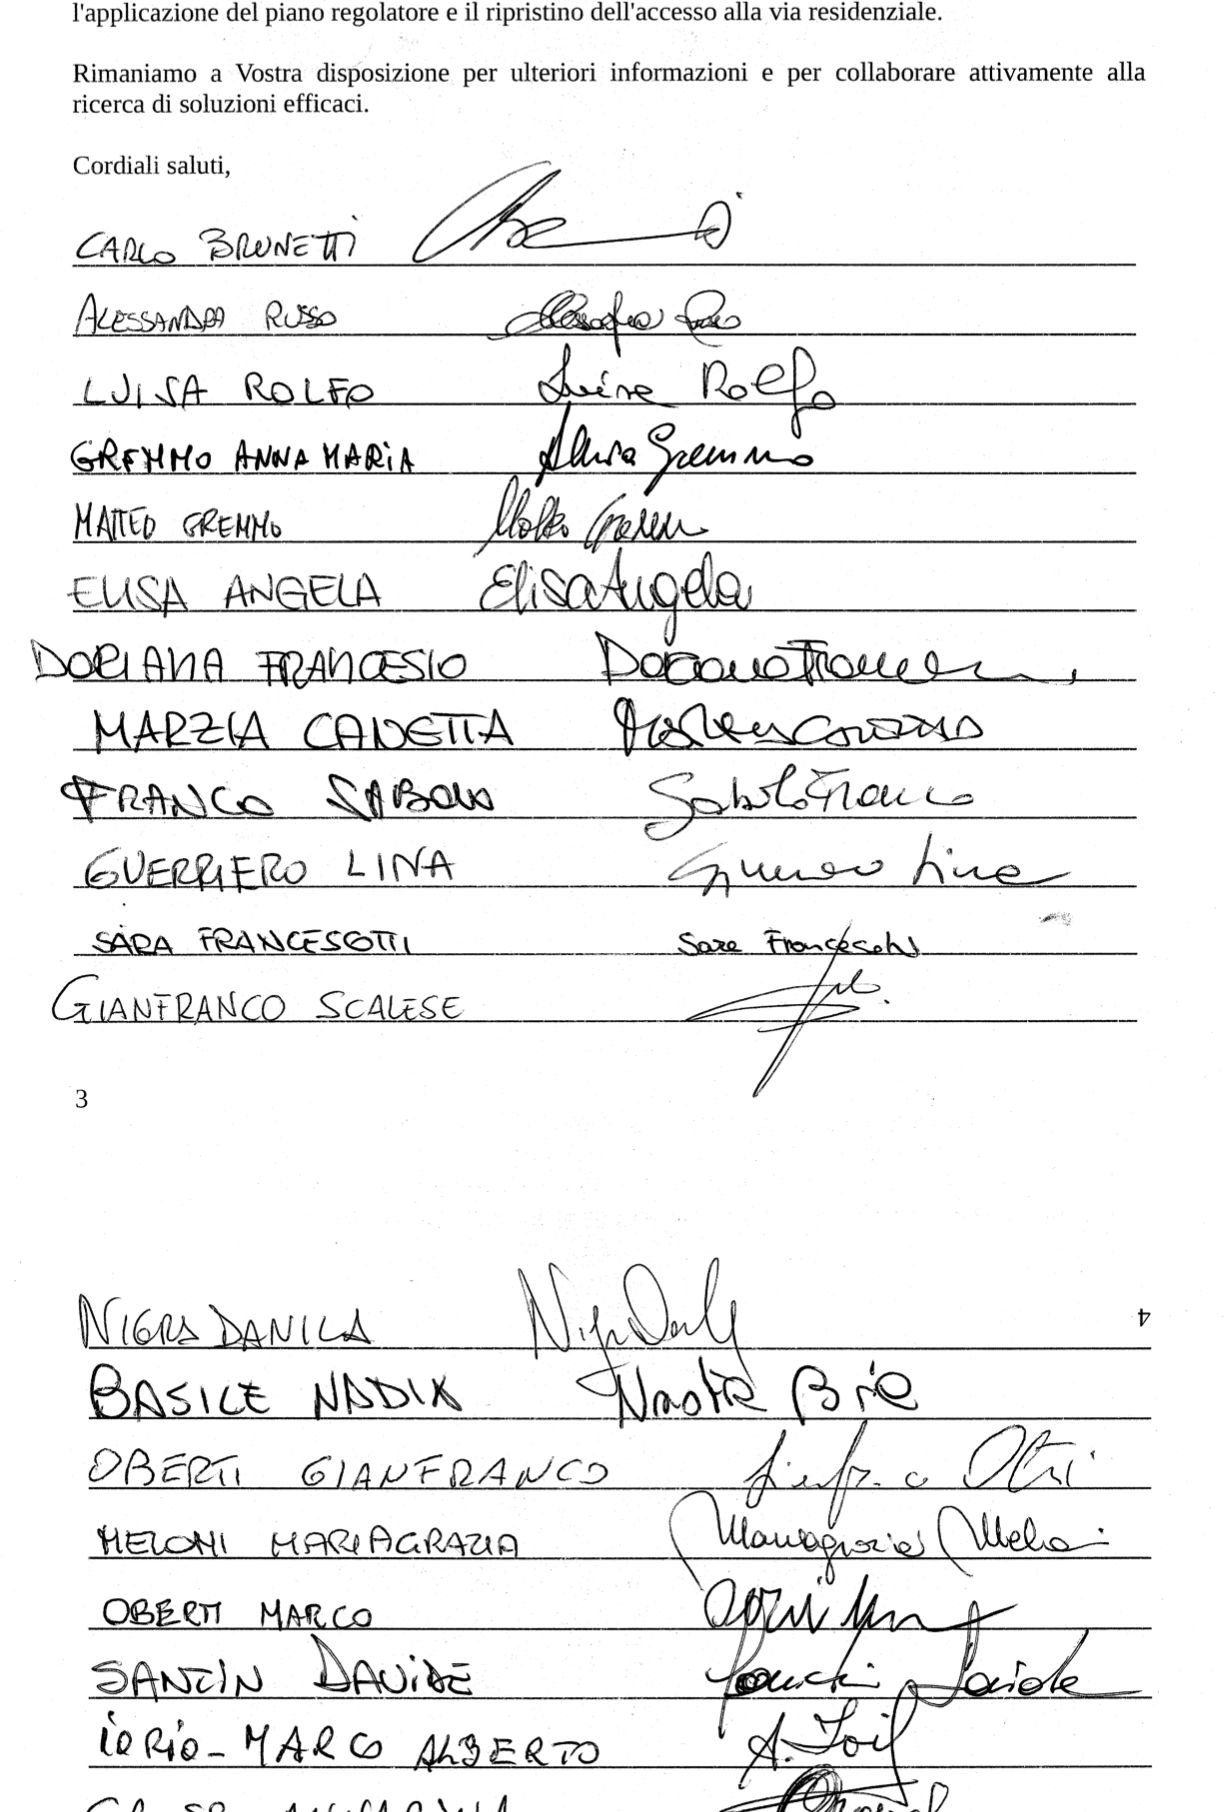 l'applicazione del piano regolatore e il ripristino dell'accesso alla via residenziale.
Rimaniamo a Vostra disposizione per ulteriori informazioni e per collaborare attivamente alla
ricerca di soluzioni efficaci.
Cordiali saluti,
CARLO BRUNETTI
ALESSANDRA RUSSO
LUISA ROLFO Luisa Rolfo
GREMMO ANNA MARIA Anna Gremmo
MATTEO GREMMO
ELISA ANGELA Elisa Angela
DORIANA FRANCESIO Doriana
MARZIA CANETTA
FRANCO SABOLO Sabolo Franco
GUERRIERO LINA Guerriero Lina
SARA FRANCESOTTI Sara
GIANFRANCO SCALESE
3
4
NIGRA DANILA
BASILE NADIA Nadia
OBERTI GIANFRANCO
MELONI MARIAGRAZIA Mariagrazia Meloni
OBERTI MARCO
SANTIN DAVIDE Davide
IORIO-MARCO ALBERTO A.